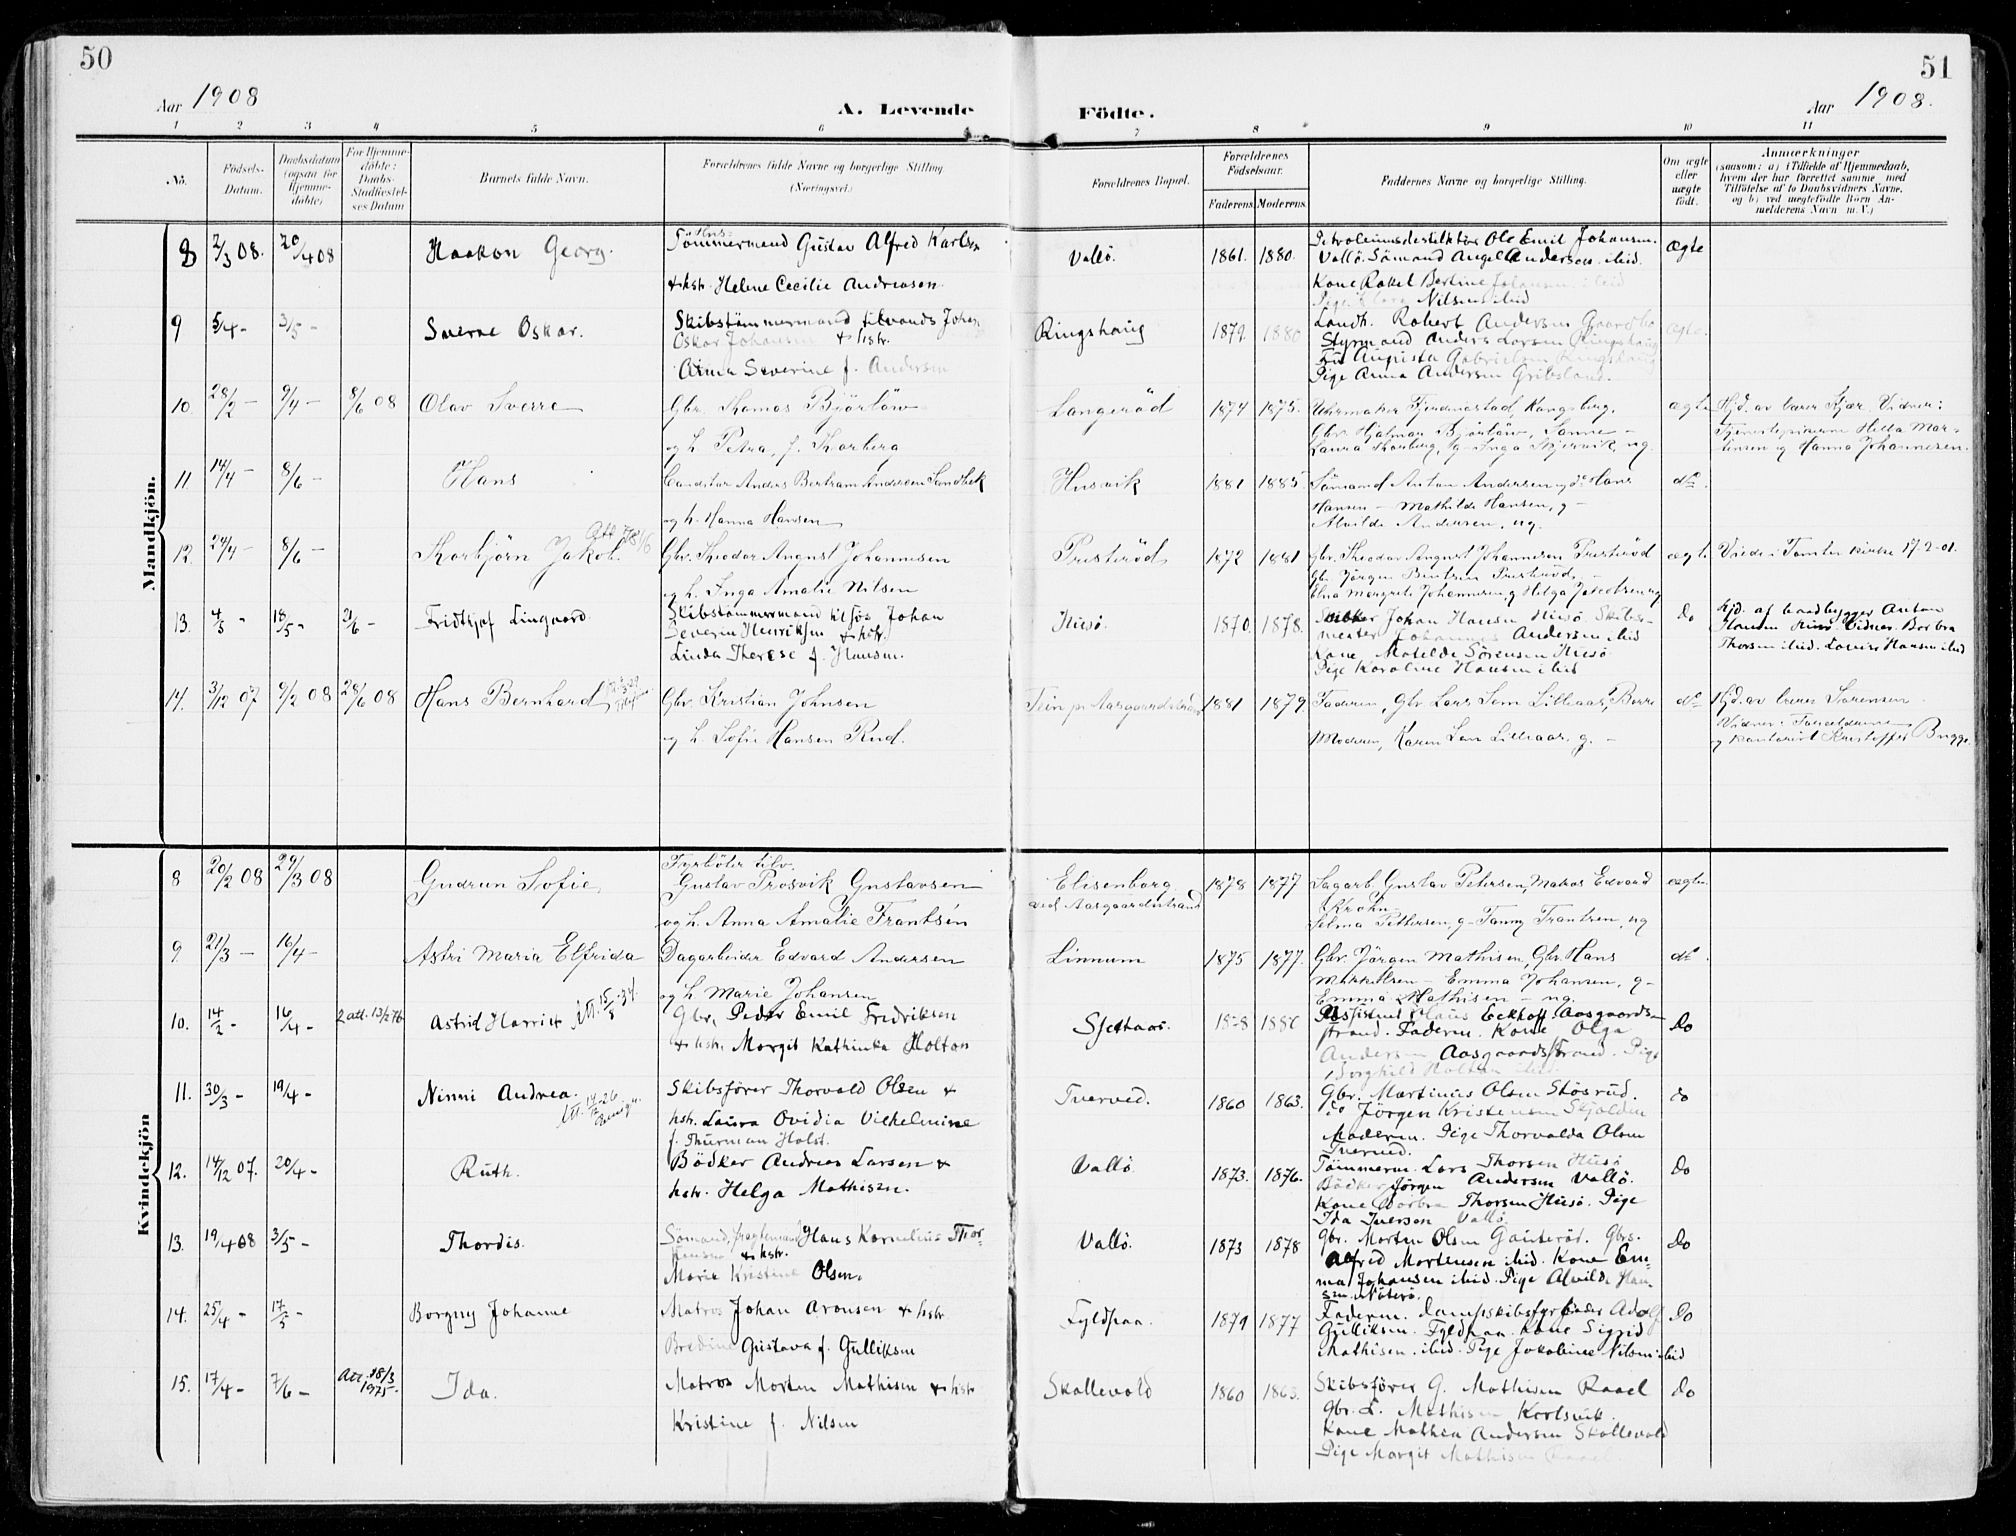 50
51
Aar 1908
A. Levende
Födte.
Aar 1908.
1 2 3 4 5 6 7 8 9 10 11
No.
Födsels-
Datum.
Daabsdatum
(ogsaa for
Hjemme-
døbte)
For Hjemme-
döbte:
Daabs-
Stadfæstel-
ses Datum
Barnets fulde Navn.
Forældrenes fulde Navne og borgerlige Stilling.
(Næringsvei.)
Forældrenes Bopæl.
Forældrenes
Födselsaar.
Faderens. Moderens.
Faddernes Navne og borgerlige Stilling.
Om ægte
eller
uægte
födt.
Anmærkninger
(saasom: a) i Tilfælde af Hjemmedaab,
hvem der har forrettet samme med
Tilföielse af to Daabsvidners Navne,
og b) ved uægtefödte Börn An-
melderens Navn m. V.)
Mandkjön.
8 2/3 08. 20/4 08 Haakon Georg. Tömmermand Gustav Alfred Karlsen
& hstr. Helene Cecilie Andreasen.
Vallö. 1861. 1880.
Ole Emil Johansen.
Vallö. Sömand Angel Andersen ibid.
Kone Rakel Bertine Johansen ibid
Nilsen ibid
ægte
9 5/4 - 3/5 - Sverre Oskar. Skibstömmermand Johan
Oskar Johansen & hstr.
Anna Severine f. Andersen
Ringshaug 1879. 1880
Landh. Robert Andersen
Styrmand Anders Larsen Ringshaug
Fru Augusta Gabrielsen Ringshaug
Pige Anna Andersen Gribsland.
ægte.
10. 28/2 - 9/4 - 8/6 08 Olav Sverre Gbr. Thomas Björlöw
og h. Petra, f. Thorberg
Langeröd 1874 1875.
Uhrmaker Kongsberg,
Gbr. Hjalmar Björlöw, Sanne -
Laura Thorberg, g - Inga ug.
ægte
Hjd. av lærer Kjær. Vidner:
Tjenestepigerne Hilda Mar-
tinsen og Hanna Johannesen.
11. 14/4 - 8/6 - Hans Anders Bertram Andersen Sandbek
og h. Hanna Hansen
Husvik 1881 1885.
Sömand Anton Andersen, do Hans
Hansen - Mathilde Hansen, g -
Alvilde Andersen, ug.
do.
12. 24/4 - 8/6 - Thorbjörn Jakob. Gbr. Theodor August Johannesen
og h. Inga Amalie Nilsen
Presteröd 1872 1881
gbr. Theodor August Johannesen Presteröd
Gbr. Jörgen Presteröd, -
Elna Margrete Johannesen, g Helga Jakobsen ug
ægte Viede i Tomter kirke 17-2-01.
13. 4/3 - 18/5 - 21/6 - Fridtjof Lingaard. Skibstömmermand tilsjös Johan
Severin Henriksen & hstr.
Linda Therese f. Hansen.
Husö. 1870. 1878.
Johan Hansen Husö. Skibs-
Johannes Andersen ibid
Kone Matilde Sörensen Husö
Pige Karoline Hansen ibid
do
Hjd. af baadbygger Anton
Hansen Husö Vidner. Borbra
Thorsen ibid. Lovise Hansen ibid
14. 3/12 07 9/2 08 28/6 08 Hans Bernhard Gbr. Kristian Johnsen
og h. Sofie Hansen Rud.
pr Aasgaardstrand 1881 1879
Faderen, Gbr. Lars Lilleaas, Borre
Moderen, Karen Lilleaas, g. -
do
Hjd. av lærer Sörensen
Vidner: Forældrene
og kontorist Kristoffer Bugge
Kvindekjön
8 20/2 08 29/3 08 Gudrun Sofie, Fyrböter tilv.
Gustav Prosvik Gustavsen
og h. Anna Amalie Frantsén
Elisenborg
ved Aasgaardstrand
1878 1877
Sagarb. Gustav Petersen, Matros Edvard
Krohn -
Selma Pettersen, g - Fanny Frantzen, ug
ægte.
9 21/3 - 16/4 - Astri Maria Elfrida Dagarbeider Edvard Andersen
og h. Marie Johansen
Linnum 1875 1877.
Gbr. Jörgen Mathisen, Gbr. Hans
Mikkelsen - Emma Johansen, g -
Emma Mathisen - ug.
do.
10. 14/2 - 16/4 - 2 att. 13/2 76 Astrid Harriet Att. 15/8 -34. Gbr. Peder Emil Fredriksen
& hstr. Margit Kathinka Holton
1880
Hans Eckhoff, Aasgaards-
strand. Faderen. Kone Olga
Andersen Aasgaardstrand. Pige
Borghild Holton ibid.
Do
11. 30/3 - 19/4 - Ninni Andrea. Skibsförer Thorvald Olsen &
hstr. Laura Ovidia Vilhelmine
f. Thurman Holst.
Tverved. 1860 1863.
Gbr. Martinus Olsen Stösrud.
do Jörgen Kristensen Skjolden
Moderen. Pige Thorvalda Olsen
Tverved.
do
12. 14/12 07. 20/4 - Ruth. Bödker Andreas Larsen &
hstr. Helga Mathisen.
Vallö. 1873. 1876.
Tömmerm. Lars Thorsen Husö
Bödker Jörgen Andersen Vallö.
Kone Borbra Thorsen Husö. Pige
Ida Iversen Vallö.
Do
13. 19/4 08 3/5 - Thordis. Sömand, Hans Kornelius Thor-
& hstr.
Marie Kristine Olsen.
Vallö. 1873 1878
Gbr. Morten Olsen Gauteröd. Gbrs.
Alfred Mortensen ibid. Kone Em-
ma Johansen ibid. Pige Alvilde Han-
sen Nöterö.
Do
14. 25/4 - 17/5 - Borgny Johanne Matros Johan Aronsen & hstr.
Bredine Gustava f. Gulliksen
Fyldpaa. 1879 1877
Faderen. Dampskibsfyrböder Adolf
Gulliksen. Fyldpaa. Kone Sigrid
Mathisen. ibid. Pige Jakobine Nilsen ibid
Do
15. 17/4 - 7/6 - Att. 18/3
1925 - Ida. Matros Morten Mathisen & hstr
Kristine f. Nilsen
Skallevold 1860 1863.
Skibsförer G. Mathisen Raael
Gbr. L. Mathisen Karlsvik.
Kone Mathea Andersen Skallevold
Pige Margit Mathisen Raael.
Do